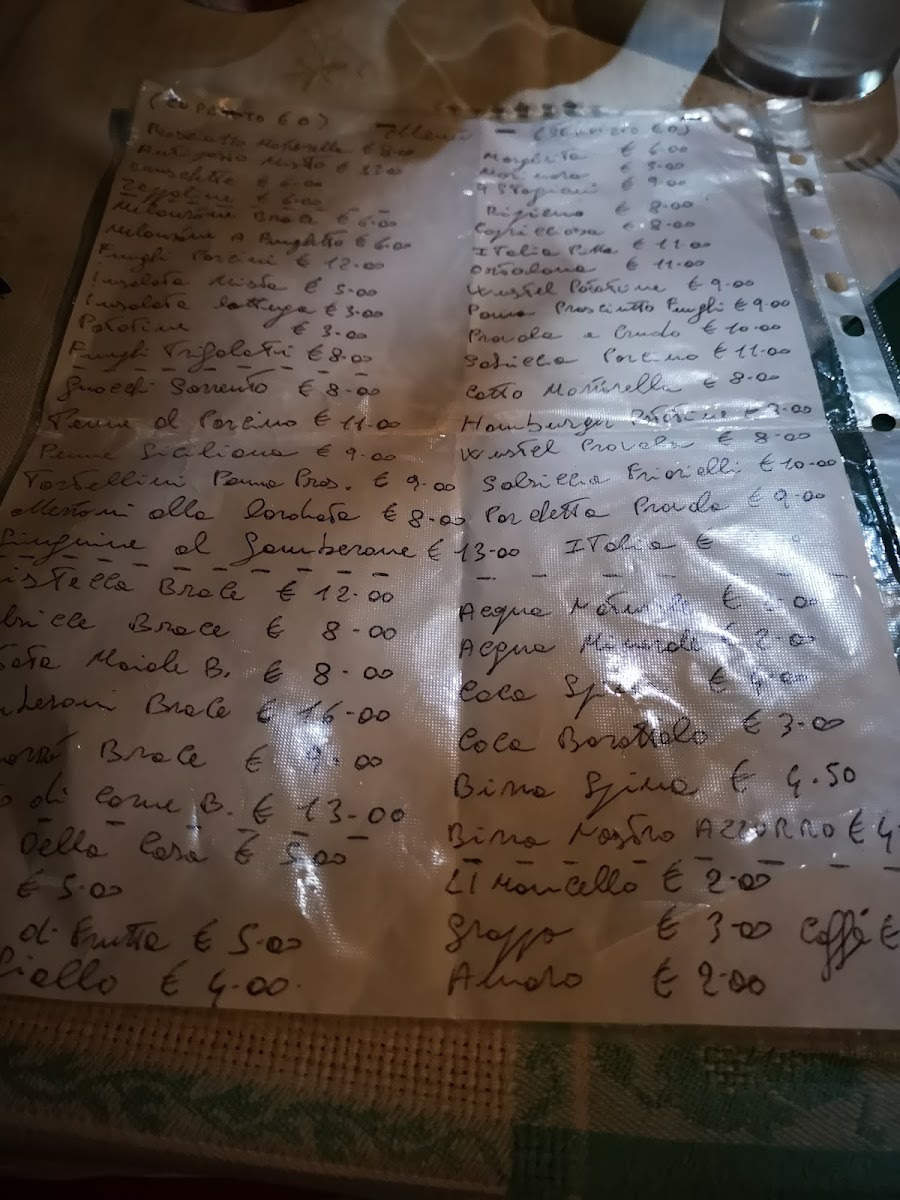 (COPERTO € 0) Menù - (SERVIZIO € 0)
Prosciutto Mozzarella € 8.00
Antipasto Misto
Bruschette € 6.00
Zeppoline € 6.00
Melanzane Brace € 6.00
Melanzane A Funghetto € 6.00
Funghi Porcini € 12.00
Insalata Mista € 5.00
Insalata lattuga € 3.00
Patatine € 3.00
Funghi Trifolati € 8.00
Gnocchi Sorrento € 8.00
Penne al Porcino € 11.00
Penne Siciliana € 9.00
Tortellini Panna Pros. € 9.00
alla € 8.00
Linguine al Gamberone € 13.00
Brace € 12.00
Brace € 8.00
Maiale B. € 8.00
Brace € 16.00
Brace € 9.00
di Carne B. € 13.00
Della Casa € 5.00
€ 5.00
di Frutta € 5.00
Giallo € 4.00
Margherita € 6.00
Marinara € 5.00
4 Stagioni € 9.00
€ 8.00
Capricciosa € 8.00
Italia Pizza € 11.00
Ortolana € 11.00
Wustel Patatine € 9.00
Panna Prosciutto Funghi € 9.00
Provola e Crudo € 10.00
Salsiccia Porcino € 11.00
Cotto Mozzarella € 8.00
Hamburger Patatine €
Wustel Provola € 8.00
Salsiccia Friarielli € 10.00
Porchetta Provola € 9.00
Italia €
Acqua Naturale €
Acqua Minerale € 2.00
Coca Spina €
Coca Barattolo € 3.00
Birra Spina € 4.50
Birra Nastro AZZURRO € 4
LIMoncello € 2.00
Grappa € 3.00 Caffé €
Amaro € 2.00